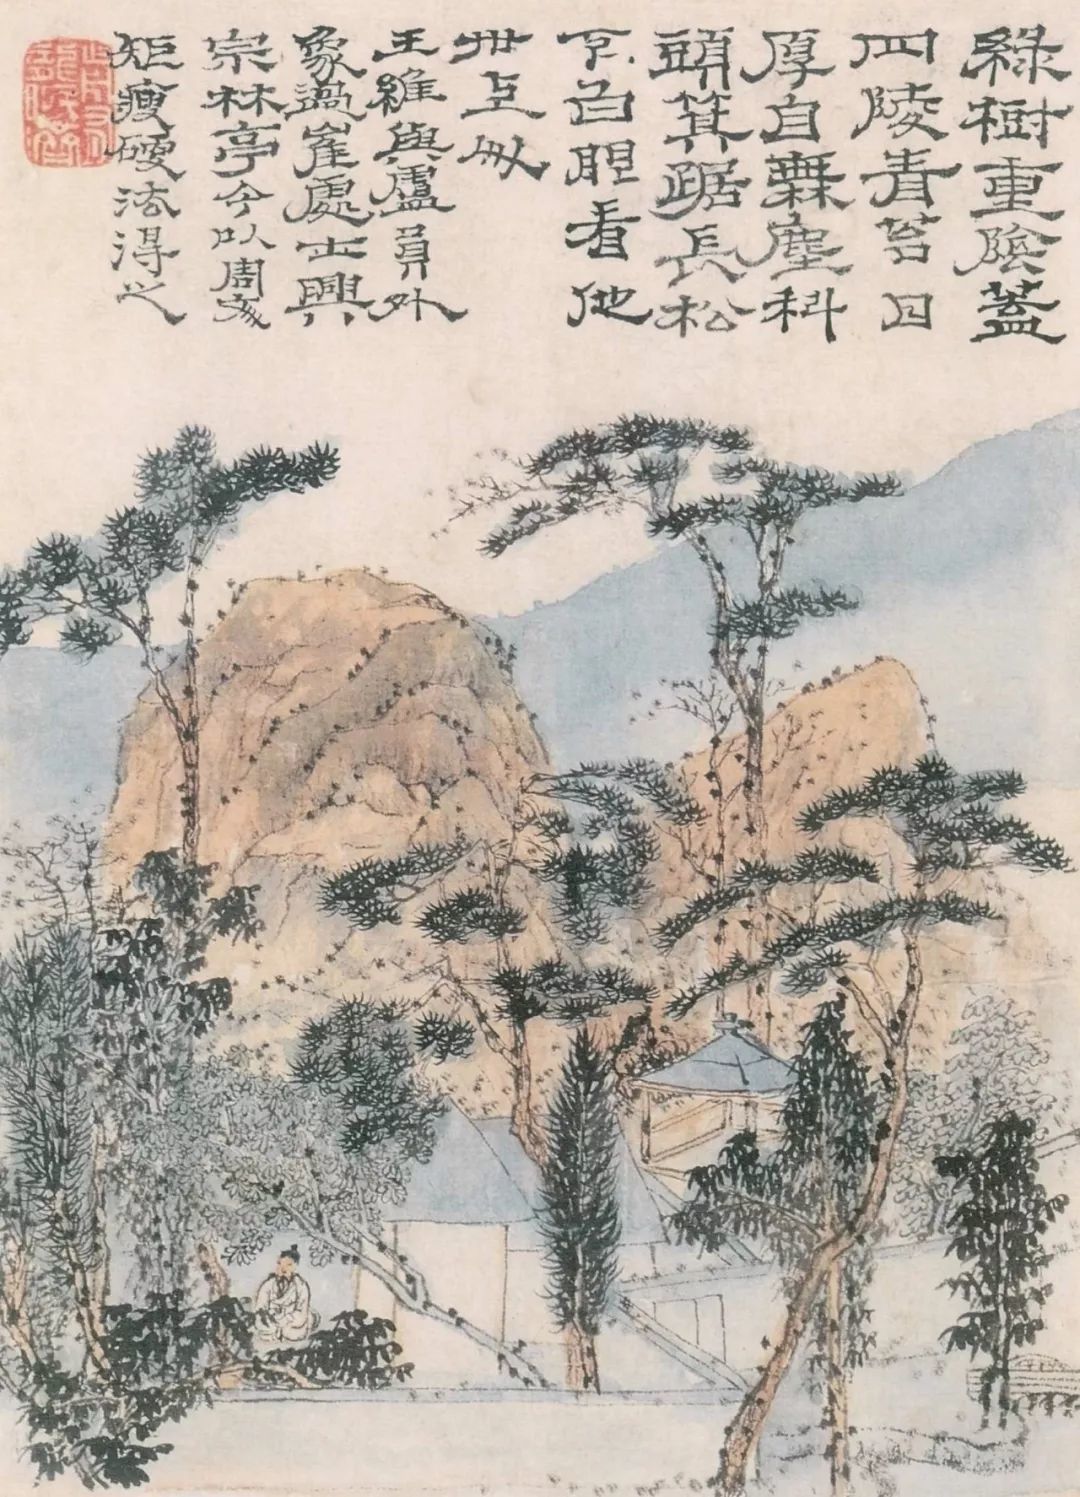 綠樹重陰蓋
四隣青苔日
厚自無塵科
頭箕踞長松
下白眼看他
世上人
王維與盧員外
象過崔處士興
宗林亭今以周文
矩瘦硬法得之